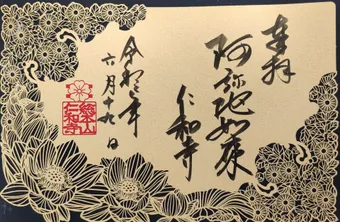 奉拝
阿弥陀如来
仁和寺
令和三年
六月十九日
総本山
仁和寺